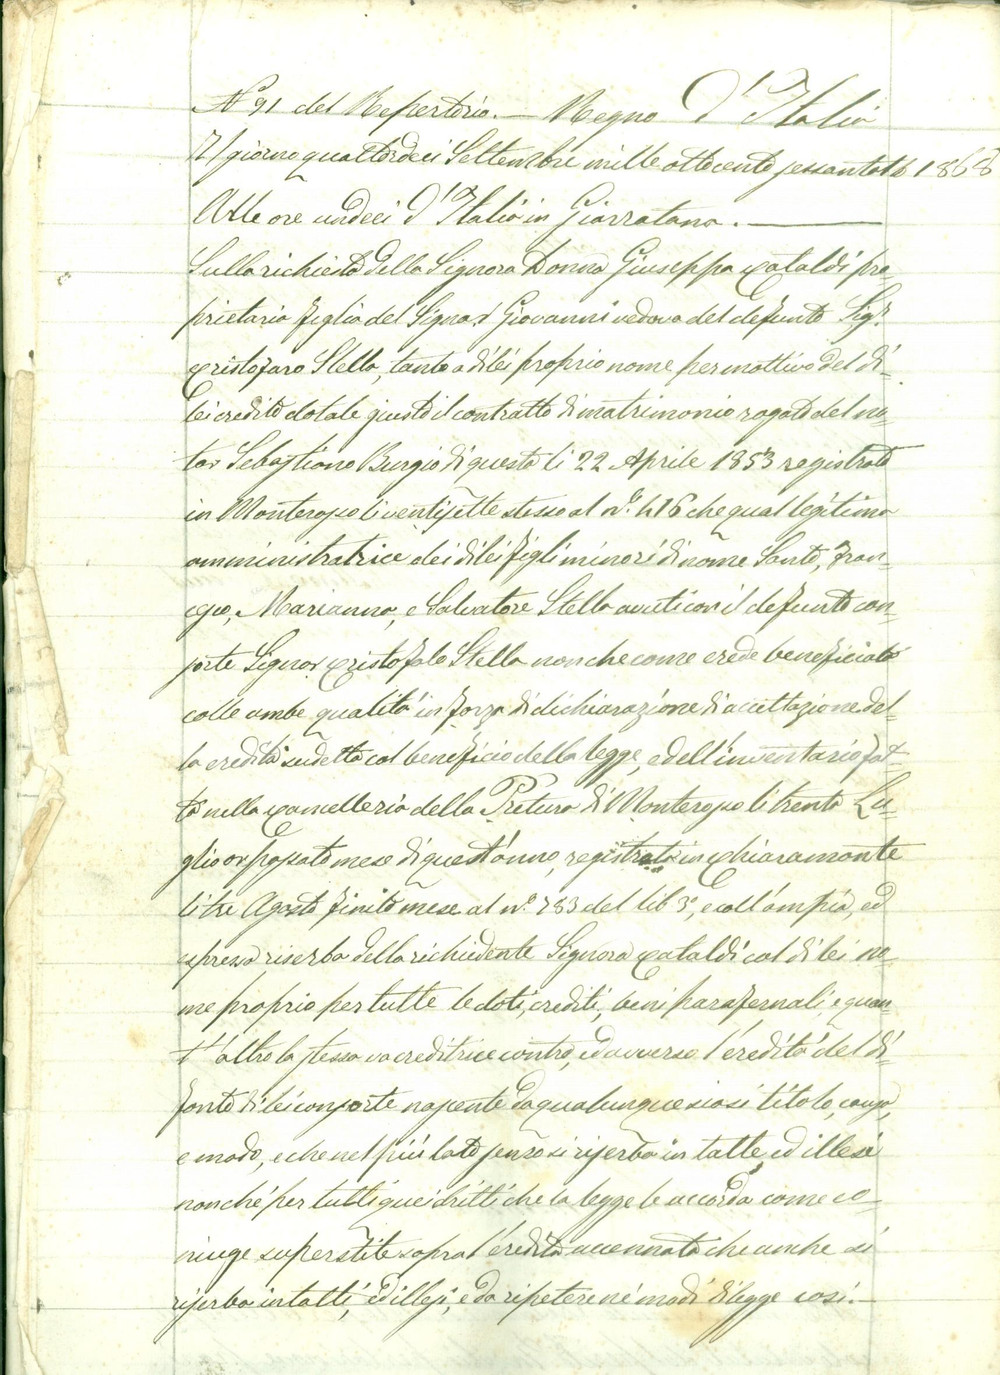 N° 91 del Repertorio. — Regno d'Italia
Il giorno quattordeci Settembre mille ottocento sessantotto 1868
Alle ore undeci d'Italia in Giarratana. —
Sulla richiesta della Signora Donna Giuseppa Cataldi pro-
prietaria figlia del Signor Giovanni vedova del defunto Sigr.
Cristofaro Stella, tanto a di lei proprio nome per mottivo del di
lei credito dotale giusto il contratto di matrimonio rogato del no-
tar Sebastiano Burgio di questa li 22 Aprile 1853 registrato
in Monterosso li ventisette stesso al n°. 416 che qual legitima
amministratrice dei di lei figli minori di nome Santo, Fran-
co, Marianna, e Salvatore Stella avuti con il defunto con-
sorte Signor Cristofalo Stella nonche come erede beneficiata
colle ambe qualità in forza di dichiarazione di accettazione del-
la eredità sudetta col beneficio della legge, e dell'inventario fat-
to nella Cancelleria della Pretura di Monterosso li trenta Lu-
glio or passato mese di quest'anno, registrata in Chiaramonte
li tre Agosto finito mese al n°. 783 del lib 3°, e coll'ampia, ed
espressa riserba della richiedente Signora Cataldi col di lei no-
me proprio per tutte le doti, crediti, beni parafernali, e quan-
t'altro la stessa va creditrice contro, ed avverso l'eredità del di
fonto di lei consorte nascente da qualunque siasi titolo, causa,
e modo, e che nel più lato senzo si riserba in tatte, ed illese
nonché per tutti quei dritti che la legge le accorda come co-
niuge superstite sopra l'eredità accennata che anche si
riserba intatti, ed illesi, e da ripetere né modi di legge così. —